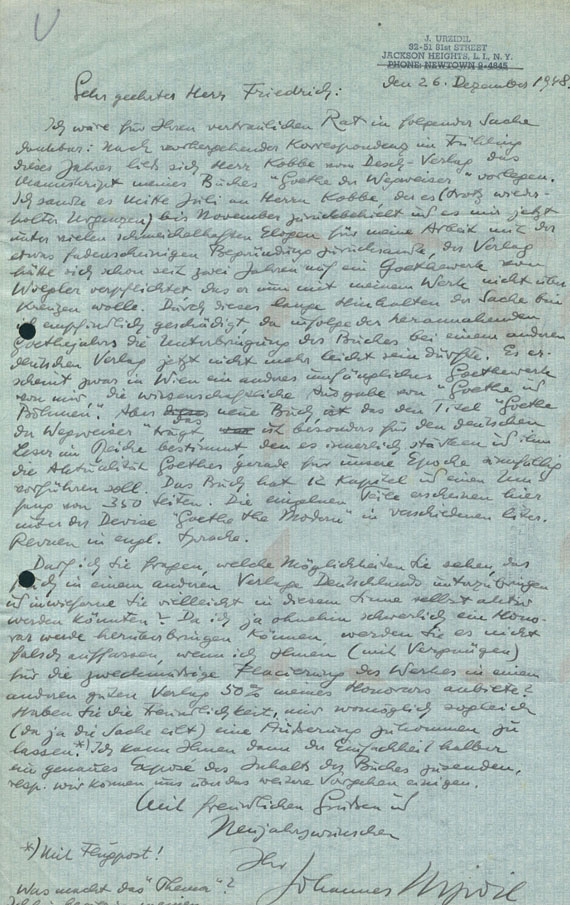 J. URZIDIL
82-51 81st STREET
JACKSON HEIGHTS, L. I., N. Y.
PHONE: NEWTOWN 9-4845
den 26. Dezember 1948.
Sehr geehrter Herr Friedrich:
Ich wäre für Ihren vertraulichen Rat in folgender Sache
dankbar: Nach vorhergehender Korrespondenz im Frühling
dieses Jahres liess sich Herr Kobbe vom Desch-Verlag das
Manuskript meines Buches "Goethe der Wegweiser" vorlegen.
Ich sandte es Mitte Juli an Herrn Kobbe, der es (trotz wieder-
holter Urgenzen) bis November zurückbehielt und es mir jetzt
unter vielen schmeichelhaften Elogen für meine Arbeit mit der
etwas fadenscheinigen Begründung zurücksandte, der Verlag
hätte sich schon seit zwei Jahren auf ein Goethewerk von
verpflichtet das er nun mit meinem Werk nicht über-
kreuzen wolle. Durch dieses lange Hinhalten der Sache bin
ich empfindlich geschädigt, da infolge des herannahenden
Goethejahrs die Unterbringung des Buches bei einem anderen
deutschen Verlag jetzt nicht mehr leicht sein dürfte. Es er-
scheint zwar in Wien ein anderes umfängliches Goethewerk
von mir, die wissenschaftliche Ausgabe von "Goethe in
Böhmen". Aber das neue Buch das den Titel "Goethe
der Wegweiser" trägt, ist besonders für den deutschen
Leser im Reiche bestimmt, den es innerlich stärken und ihm
die Aktualität Goethes gerade für unsere Epoche sinnfällig
vorführen soll. Das Buch hat 12 Kapitel und einen Um-
fang von 350 Seiten. Die einzelnen Teile erscheinen hier
unter der Devise "Goethe the Modern" in verschiedenen liter.
Revuen in engl. Sprache.
Darf ich Sie fragen, welche Möglichkeiten Sie sehen, das
Buch in einem andren Verlage Deutschlands unterzubringen
und inwieferne Sie vielleicht in diesem Sinne selbst aktiv
werden könnten? Da ich ja ohnehin schwerlich ein Hono-
rar werde herüberbringen können, werden Sie es nicht
falsch auffassen, wenn ich Ihnen (mit Vergnügen)
für die zweckmässige Placierung des Werkes in einem
anderen guten Verlag 50% meines Honorars anbiete?
Haben Sie die Freundlichkeit, mir womöglich sogleich
(da ja die Sache eilt) eine Äusserung zukommen zu
lassen.*) Ich kann Ihnen dann der Einfachheit halber
ein genaues Exposé des Inhalts des Buches zusenden,
resp. wir können uns über das weitere Vorgehen einigen.
Mit freundlichen Grüssen und
Neujahrswünschen
Ihr Johannes Urzidil
*) Mit Flugpost!
Was macht das "Thema"?